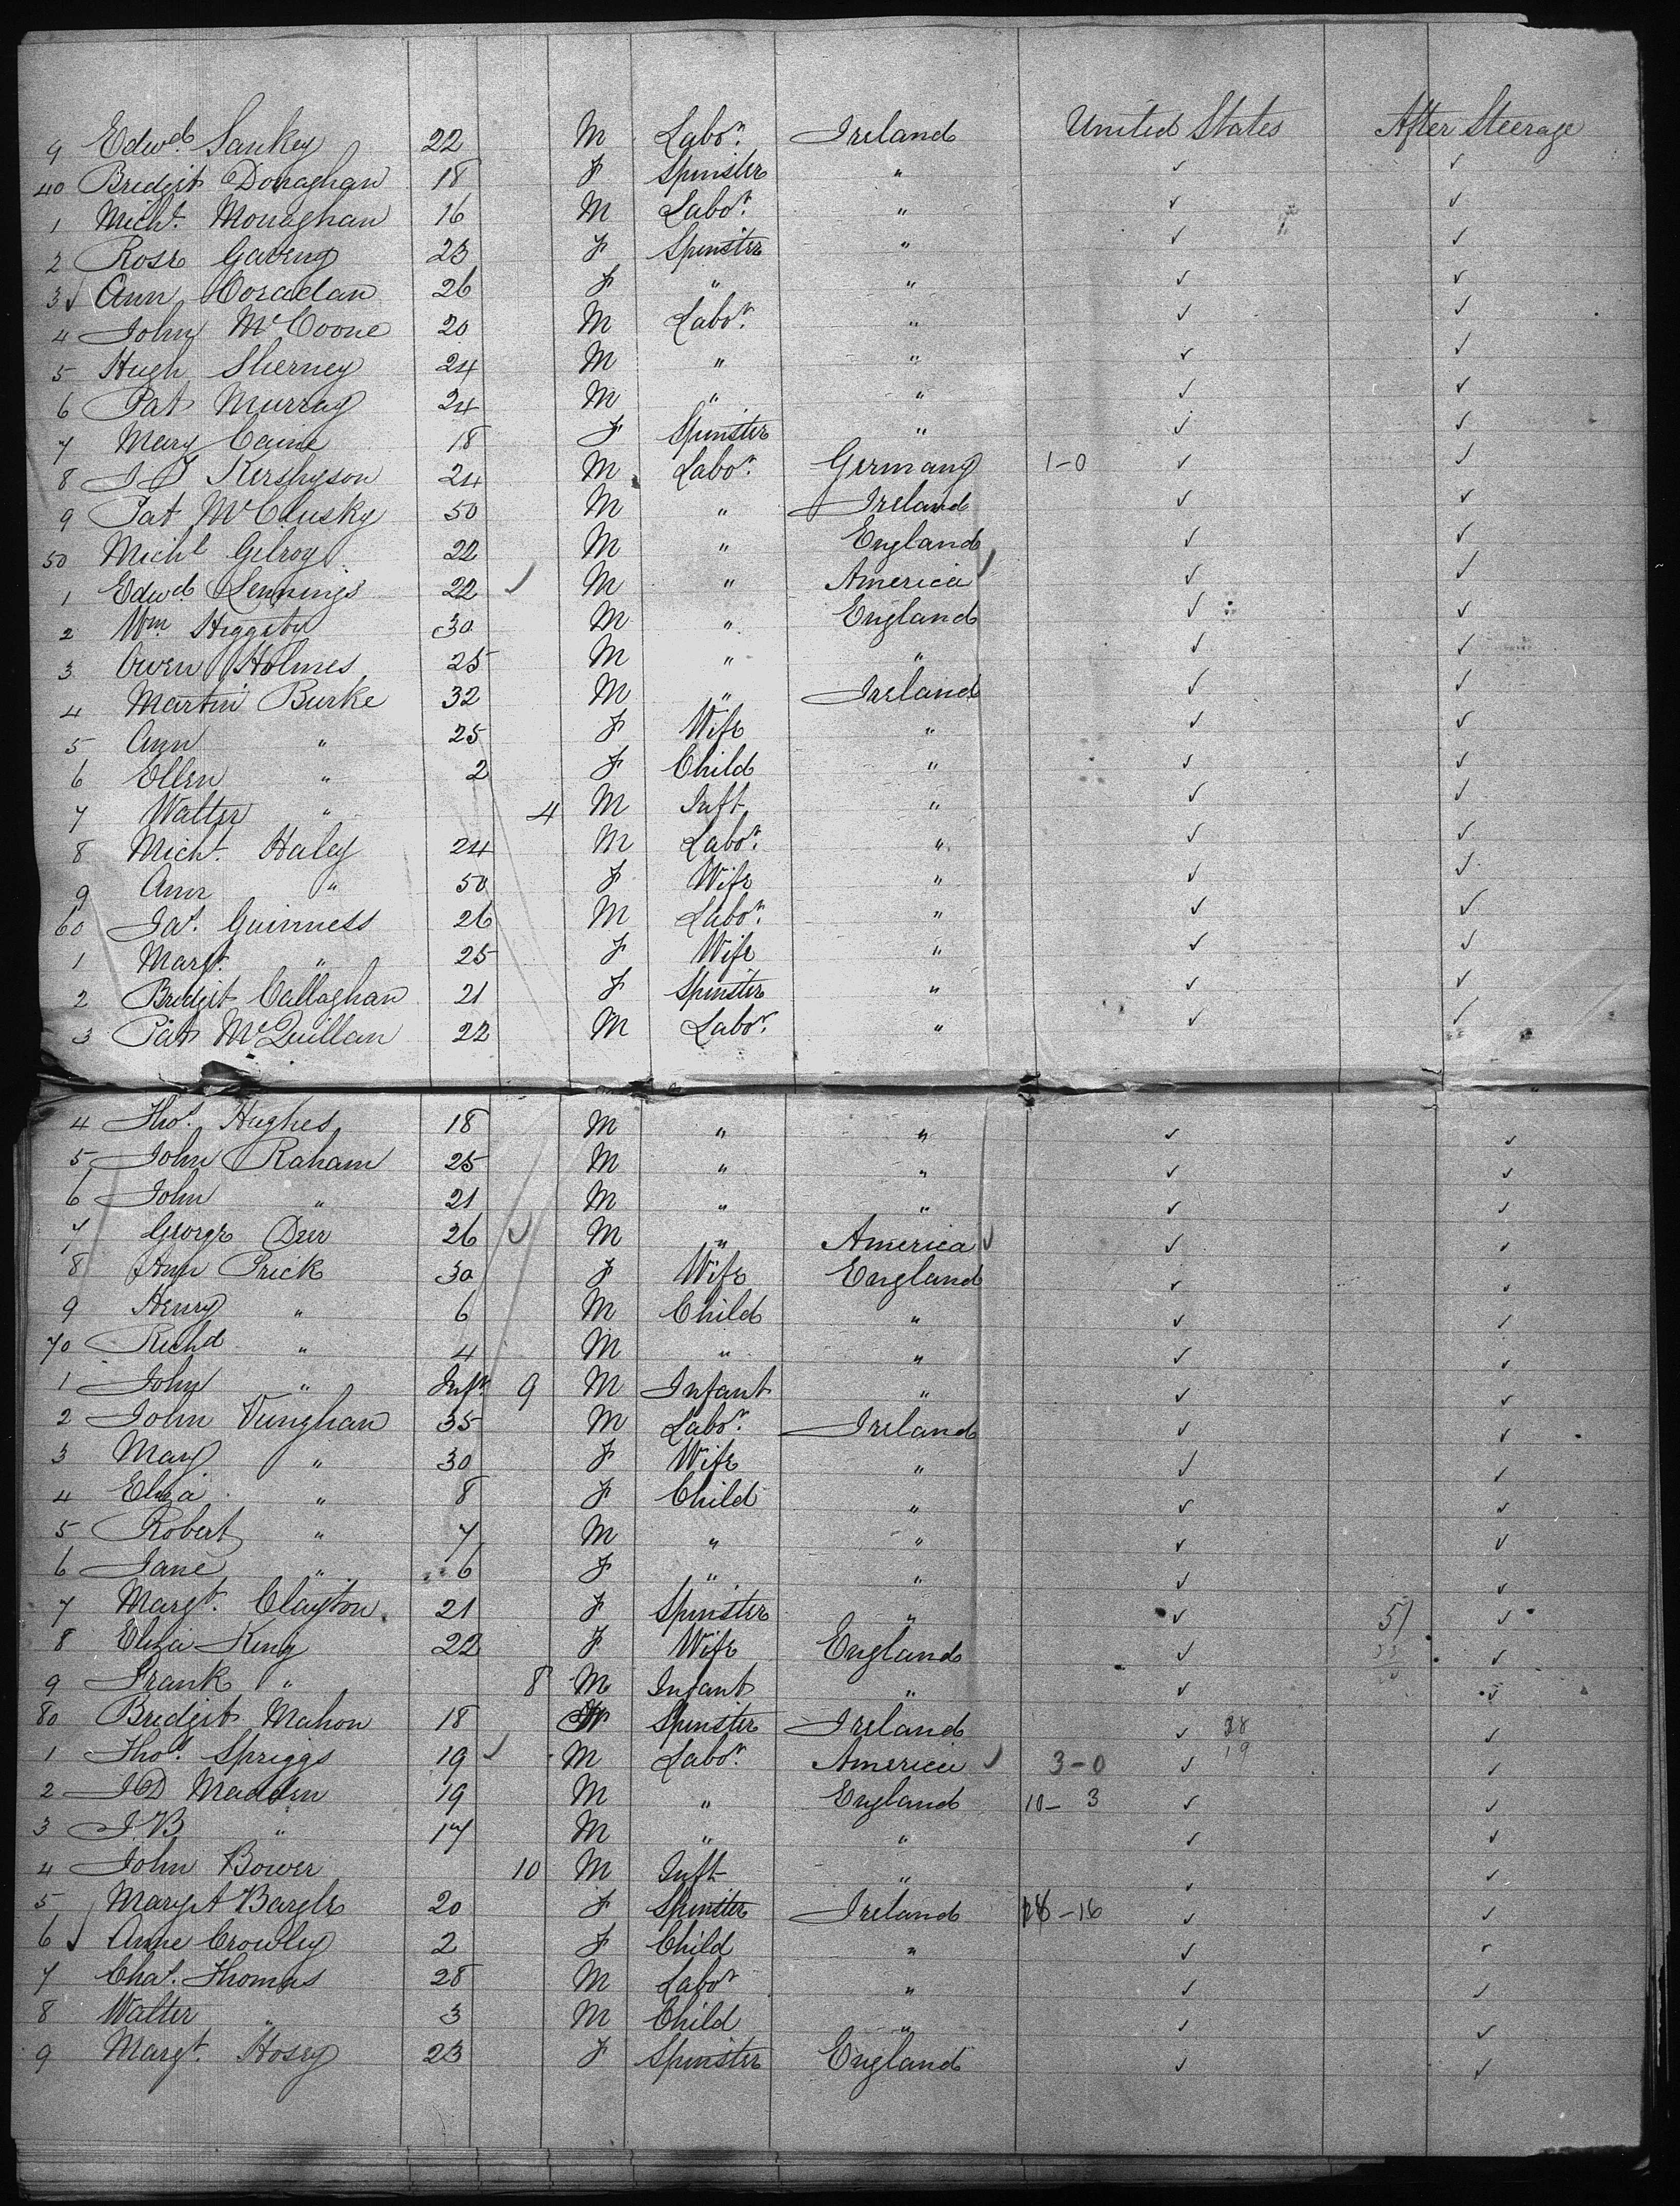 9 Edwd. Sankey 22 M Labor. Ireland United States After Steerage
40 Bredgit Donaghan 18 F Spinster " ✓ ✓
1 Michl. Monaghan 16 M Labor. " ✓ ✓
2 Rose 23 F Spinster " ✓ ✓
3 ✓ Ann 26 F " " ✓ ✓
4 John McCoone 20 M Labor. " ✓ ✓
5 Hugh Sherney 24 M " " ✓ ✓
6 Pat Murray 24 M " " ✓ ✓
7 Mary Caine 18 F Spinster " ✓ ✓
8 24 M Labor. Germany 1-0 ✓ ✓
9 Pat McClusky 50 M " Ireland ✓ ✓
50 Michl Gilroy 22 M " England ✓ ✓
1 Edwd. Jennings 22 ✓ M " America ✓ ✓ ✓
2 Wm 30 M " England ✓ ✓
3 Owen Holmes 25 M " " ✓ ✓
4 Martin Burke 32 M " Ireland ✓ ✓
5 Ann " 25 F Wife " ✓ ✓
6 Ellen " 2 F Child " ✓ ✓
7 Walter " 4 M Inft. " ✓ ✓
8 Michl. Haley 24 M Labor. " ✓ ✓
9 Ann " 50 F Wife " ✓ ✓
60 Jas. Guinness 26 M Labor. " ✓ ✓
1 Margt. " 25 F Wife " ✓ ✓
2 Bredgit Callaghan 21 F Spinster " ✓ ✓
3 Pat McQuillan 22 M Labor. " ✓ ✓
4 Thos. Hughes 18 M " " ✓ ✓
5 John Raham 25 M " " ✓ ✓
6 John " 21 M " " ✓ ✓
7 George 26 ✓ M " America ✓ ✓ ✓
8 Ann Prick 30 F Wife England ✓ ✓
9 Henry " 6 M Child " ✓ ✓
70 Richd " 4 M " " ✓ ✓
1 John " Inft 9 M Infant " ✓ ✓
2 John Vunghan 35 M Labor. Ireland ✓ ✓
3 Mary " 30 F Wife " ✓ ✓
4 Eliza " 8 F Child " ✓ ✓
5 Robert " 7 M " " ✓ ✓
6 Jane " 6 F " " ✓ ✓
7 Margt. Clayton 21 F Spinster " ✓ 51 ✓
8 Eliza King 22 F Wife England ✓ ✓
9 Frank " 8 M Infant " ✓ ✓
80 Bredgit Mahon 18 Spinster Ireland ✓ 38 ✓
1 Thos. Spriggs 19 ✓ M Labor. America ✓ 3-0 ✓ 19 ✓
2 J D Madden 19 M " England 10-3 ✓ ✓
3 J.B " 17 M " " ✓ ✓
4 John Bower 10 M Inft " ✓ ✓
5 Mary A Bargle 20 F Spinster Ireland 28-16 ✓ ✓
6 ✓ Anne Crowley 2 F Child " ✓ ✓
7 Chas. Thomas 28 M Labor " ✓ ✓
8 Walter " 3 M Child " ✓ ✓
9 Margt. Hosey 23 F Spinster England ✓ ✓